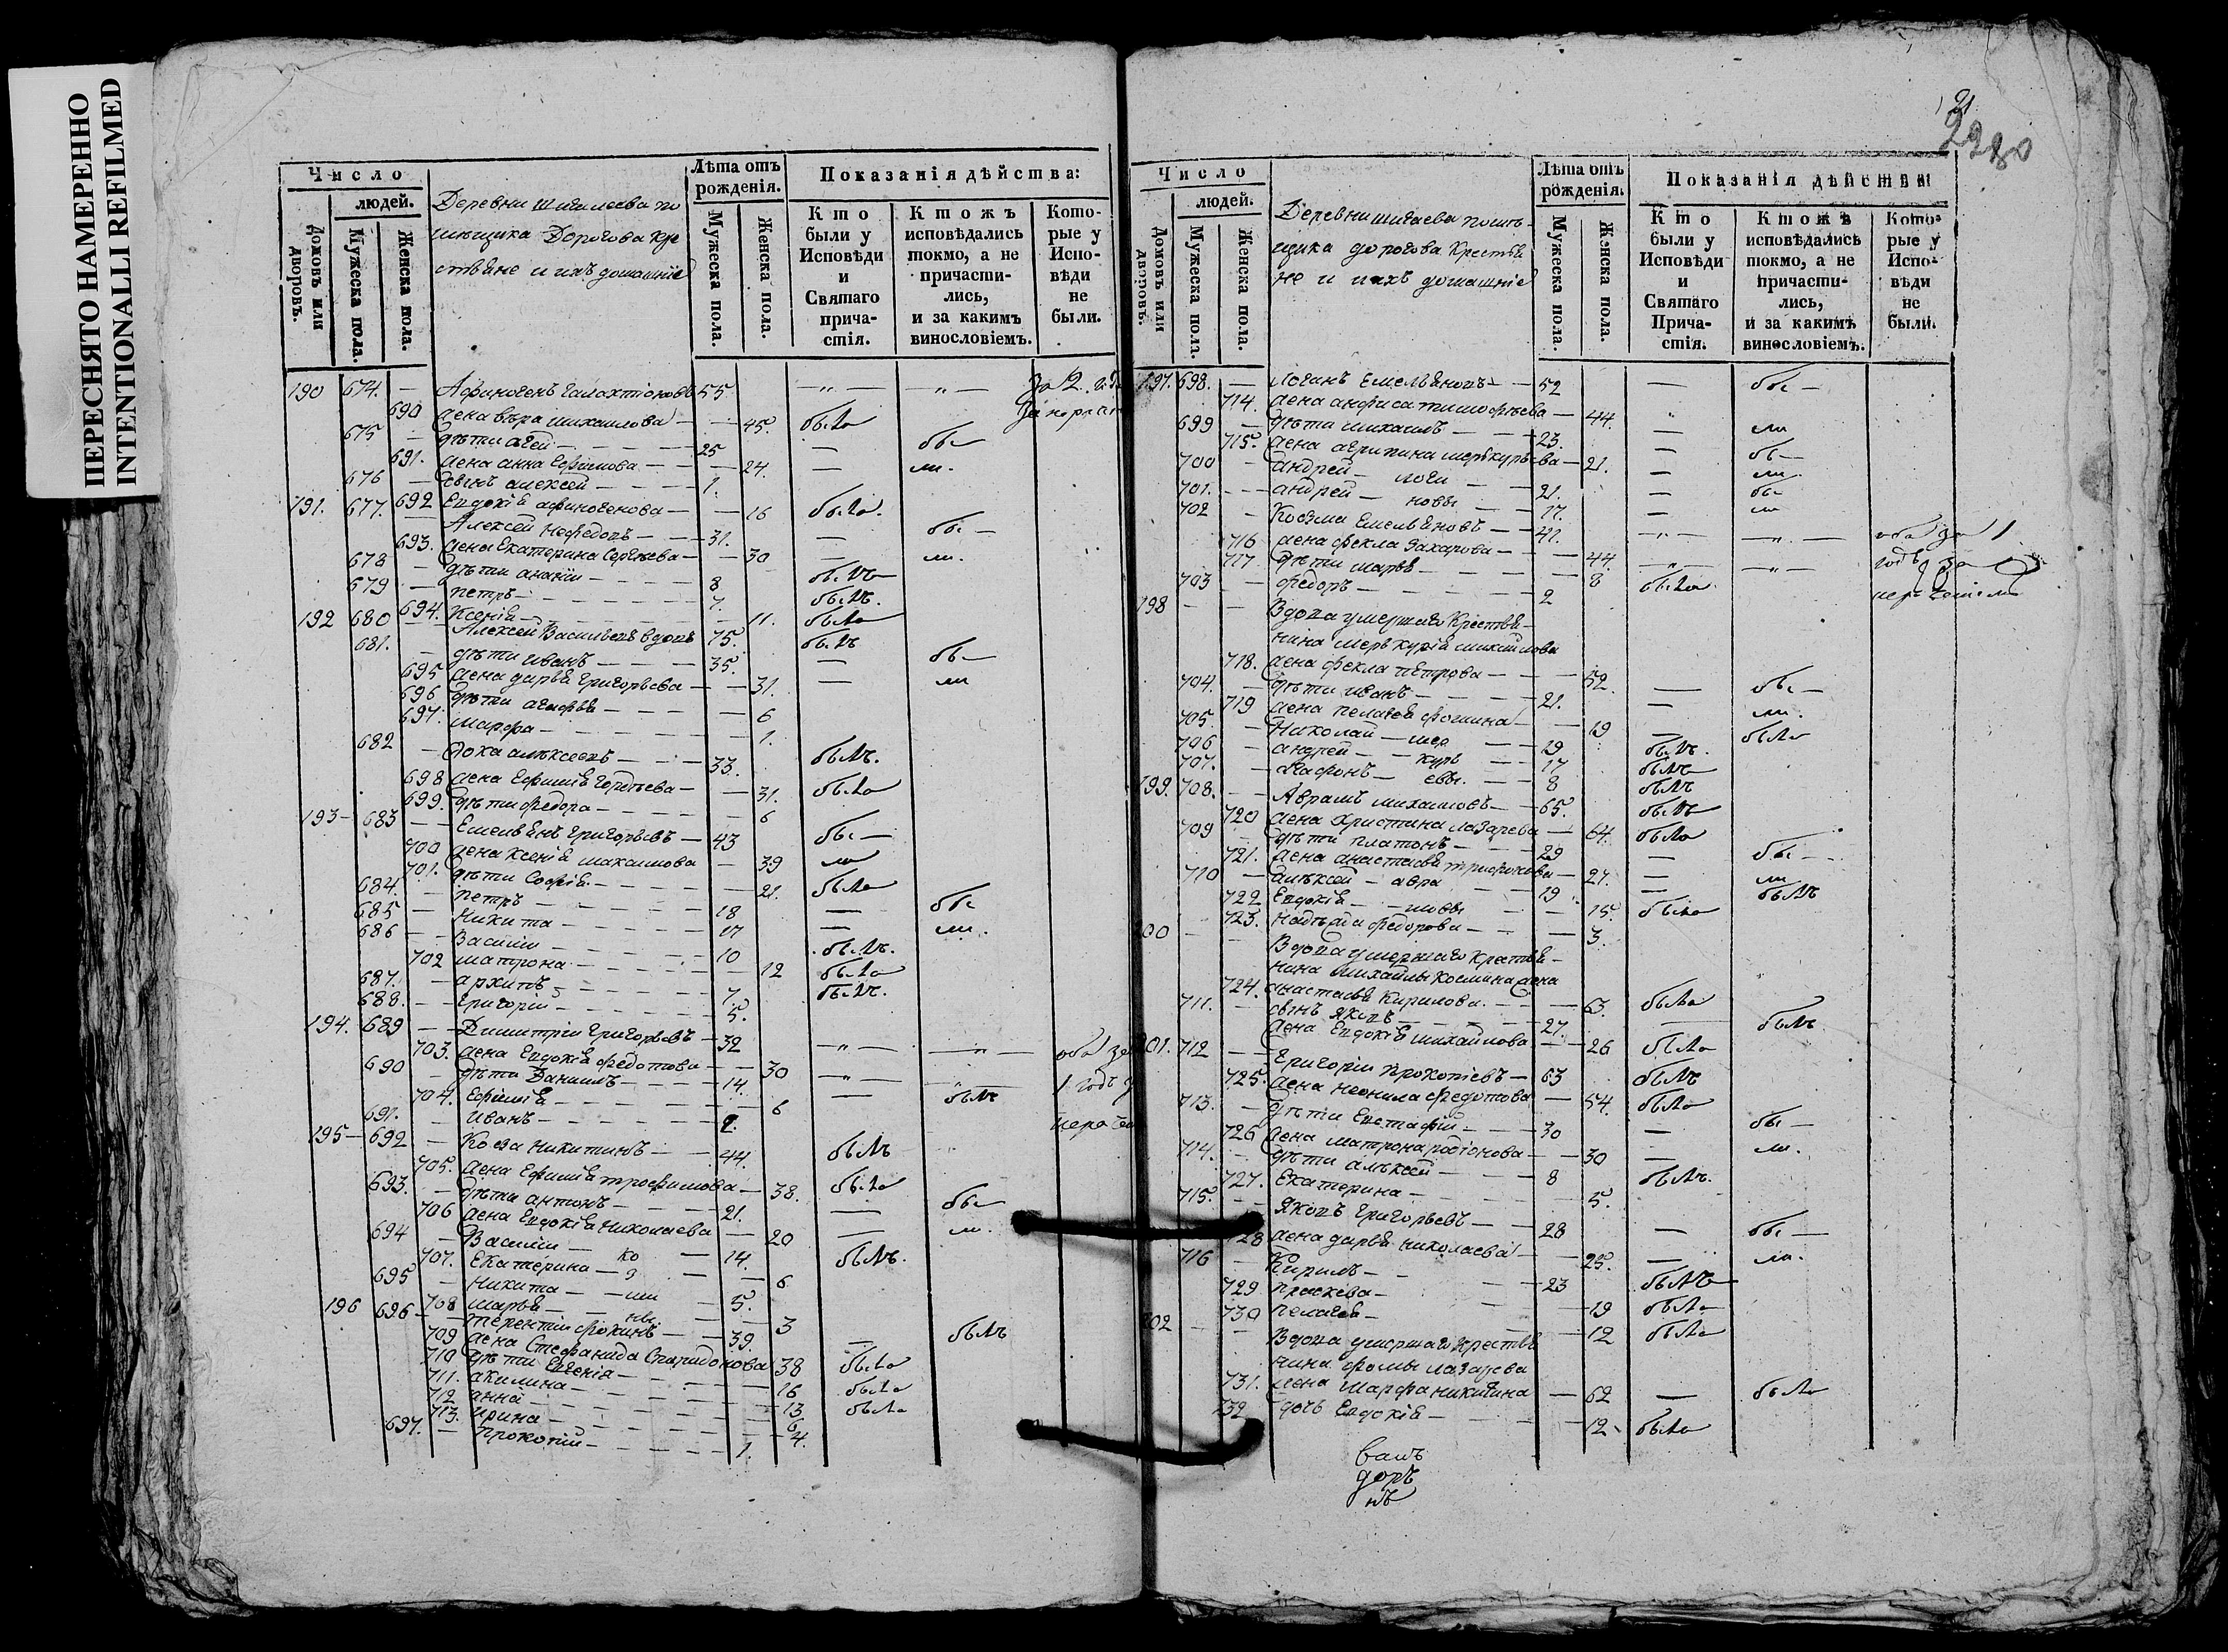 ПЕРЕСНЯТО НАМЕРЕННО
INTENTIONALLI REFILMED
Число
людей.
Домовъ или дворовъ.
Мужеска пола.
Женска пола.
Деревни Шигалеева по
мещика Дорогова кре
стьяне и ихъ домашніе
Лѣта отъ рожденія.
Мужеска пола.
Женска пола.
Показанія дѣйства:
Кто были у Исповѣди и Святаго причастія.
Ктожъ исповѣдались токмо, а не причастились, и за какимъ винословіемъ.
Которые у Исповѣди не были.
190 674. — 55 — „ — „ — За 2.
690 жена вѣра михаилова — 45. была
675 — дѣти — — 25 — бы
691. жена анна Ефимова — — 24. — ли.
676 — сынъ алексей — — 1.
692 Евдокія афиногенова — — 16 была.
191. 677. — Алексей Нефедовъ — — 31. — бы —
693. жена Екатерина Сергѣева — — 30 — ли.
678 — дѣти ананій — — 8 былъ
679 — петръ — — 7. былъ.
694. Ксенія — — 11. была
192 680 — Алексей Васильевъ вдовъ 75. былъ
681. — дѣти иванъ — — 35. — бы —
695 жена дарья григорьева — — 31. — ли
696 дѣти агафья — — 6
697. марфа — — 1.
682 — Фока алексеевъ — — 33. былъ.
698 жена Ефимія — — 31. была
699. дѣти федора — — 6
193 — 683 — Емельянъ григорьевъ — 43 бы —
700 жена ксенія максимова — 39 ли
701. дѣти Софія — — 21. была
684. — петръ — — 18 — бы
685 — Никита — — 17 — ли.
686 — Василій — — 10 былъ.
702 матрона — — 12 была
687. — архипъ — — 7. былъ.
688. — григорій — — 5.
194. 689 — Димитрій григорьевъ — 32 — „ — — „ — оба за
703. жена Евдокія федотова — — 30 — „ — — „ — 1 годъ
690 — дѣти Данилъ — — 14. — былъ
704. Ефимія — — 6
691. — Иванъ — —
195 — 692 — Козма никитинъ — — 44. былъ
705. жена Ефимія трофимова — 38. была
693. — дѣти антонъ — — 21. — бы
706 жена Евдокія Николаева — 20 — ли.
694 — Василій — ко — 14. былъ.
707. Екатерина — з — — 6
695 — Никита — ми — 5.
708 марья — — 3
196 696 — терентій фокинъ — — 39. — былъ
709 жена Стефанида Спиридонова 38 была
710 дѣти Евгенія — — 16 была
711. акилина — — 13 была
712 анна — — 6
713. Ирина — — 4.
697. — прокопій — — 1.
21
2280
Число
людей.
Домовъ или дворовъ.
Мужеска пола.
Женска пола.
Деревни шигаева помѣ-
щика дорогова крестья
не и ихъ домашніе
Лѣта отъ рожденія.
Мужеска пола.
Женска пола.
Показанія дѣйства
Кто были у Исповѣди и Святаго Причастія.
Ктожъ исповѣдались токмо, а не причастились, и за какимъ винословіемъ.
Которые у Исповѣди не были.
197. 698. — Логинъ Емельяновъ — — 52 — бы —
714. жена анфиса тимофѣева — 44. „
699 — дѣти михаилъ — — 23. — ли
715. жена агрипина меркурьева — 21. — бы —
700 — андрей — логи — 21. — ли.
701. — андрей — новы — 17. — бы
702 — Козма Емельяновъ — — 41. — ли
716 жена фекла Захарова — — 44. — „ — — „ — оба за 1
717. дѣти марья — — 8 — „ — — „ — годъ за
703 — федоръ — — 2 была
198 — — Вдова умершаго крестья-
нина меркурія михаилова
718. жена фекла петрова — — 52.
704. — дѣти иванъ — — 21. — бы —
719 жена пелагея фомина — — 19 — ли.
705. — Николай — мер — 19 — была
706 — андрей — курь — 17 былъ.
707. — агафонъ — евы. — 8 былъ
199. 708. — Аврамъ михаиловъ — 65. былъ
720 жена христина лазарева — 64. былъ
709 — дѣти платонъ — — 29 была
721. жена анастасья трифонова — 27. — бы —
710 — алексей — авра — 19 — ли
722 Евдокія — мовы — 15. — былъ
723. Надежда федорова — — 3. была
200 — — Вдова умершаго крестья-
нина михаилы космина жена
724. анастасья Кирилова. — — 63. была
711. — сынъ Яковъ — — 27. — былъ.
жена Евдокія михайлова — — 26 была
201. 712 — Григорій прокопіевъ — 63 былъ
725. жена неонила федотова — 54. была
713. — дѣти Евстафій — — 30 — бы —
726 жена матрона родіонова — 30 — ли.
714. — дѣти алексей — — 8 былъ.
727. Екатерина — — 5.
715. — Яковъ григорьевъ — — 28 — бы —
28 жена дарья николаева — — 25. — ли.
716 — Кирилъ — — 23 былъ
729 прасковья — — 19 была
730 пелагея — — 12 была
202 — — Вдова умершаго крестья
нина фомы лазарева
731. жена марфа никитина — 62 — была
732 дочь Евдокія — — 12 была